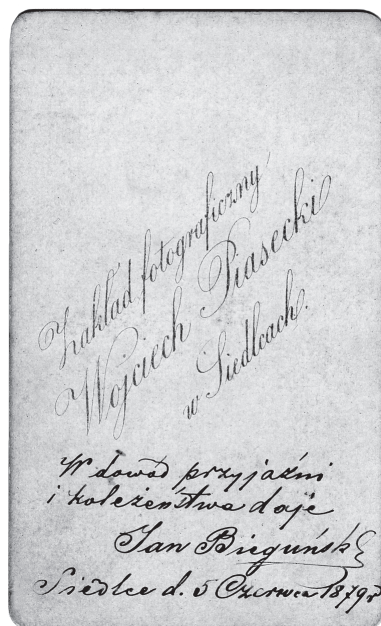 Zakład fotograficzny
Wojciech Piasecki
w Siedlcach.
W dowód przyjaźni
i koleżeństwa daje
Jan Bieguński
Siedlce d. 5 Czerwca 1879 r